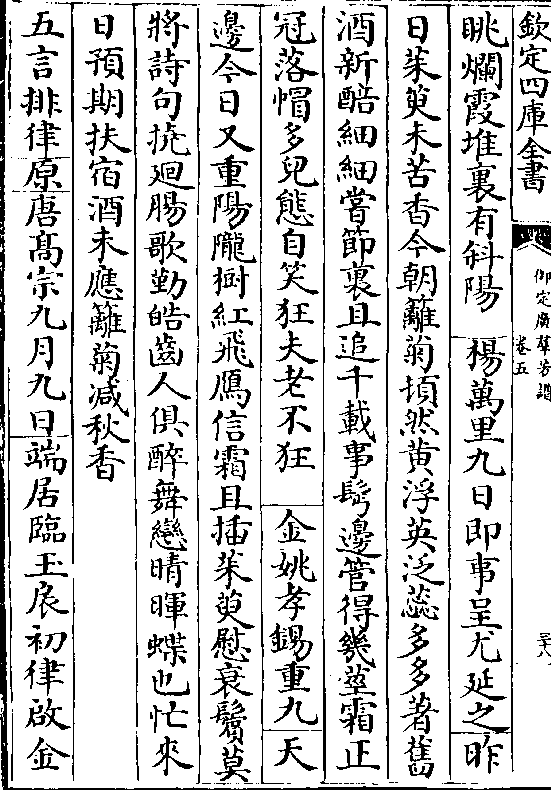 欽定四庫全書
御定廣羣芳譜
卷五
三十八
眺爛霞堆裏有斜陽 楊萬里九日即事呈尤延之昨
日茱萸未苦香今朝籬菊頓然黄浮英泛蕊多多著舊
酒新醅細細嘗節裏且追千載事鬂邊管得幾莖霜正
冠落帽多兒態自笑狂夫老不狂 金姚孝錫重九天
邊今日又重陽隴樹紅飛鴈信霜且插茱萸慰衰鬢莫
將詩句撓廻腸歌勤皓齒人俱醉舞戀晴暉蝶也忙來
日預期扶宿酒未應籬菊减秋香
五言排律原唐髙宗九月九日端居臨玉扆初律啟金